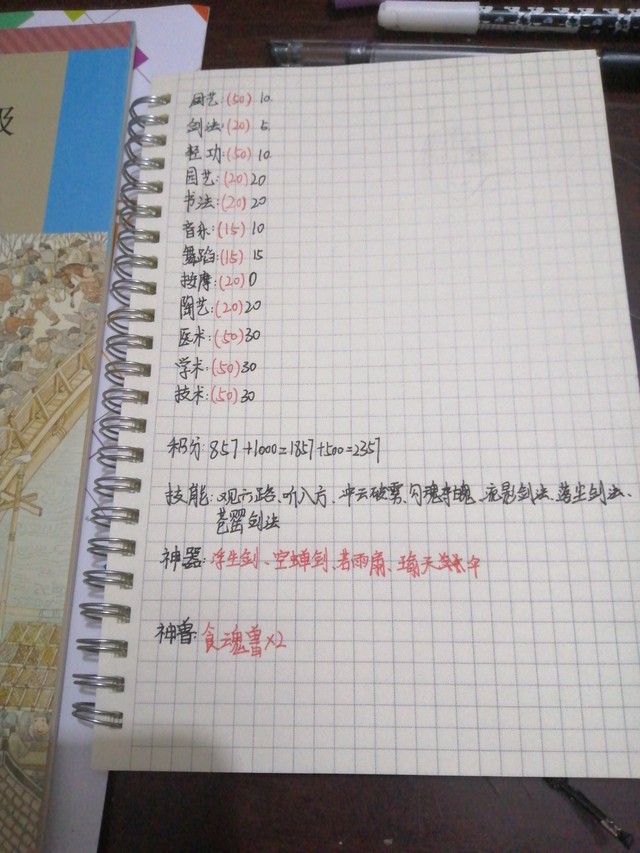 级
厨艺:(50)10
剑法:(20)5
轻功:(50)10
园艺:(20)20
书法:(20)20
音乐:(15)10
舞蹈:(15)15
按摩:(20)0
陶艺:(20)20
医术:(50)30
学术:(50)30
技术:(50)30
积分:857+1000=1857+500=2357
技能:观六路、听八方、冲云破雾、勾魂、夜影剑法、落尘剑法、
苍罂剑法
神器:浮生剑、空蝉剑、若雨扇、
神兽:食魂兽×2